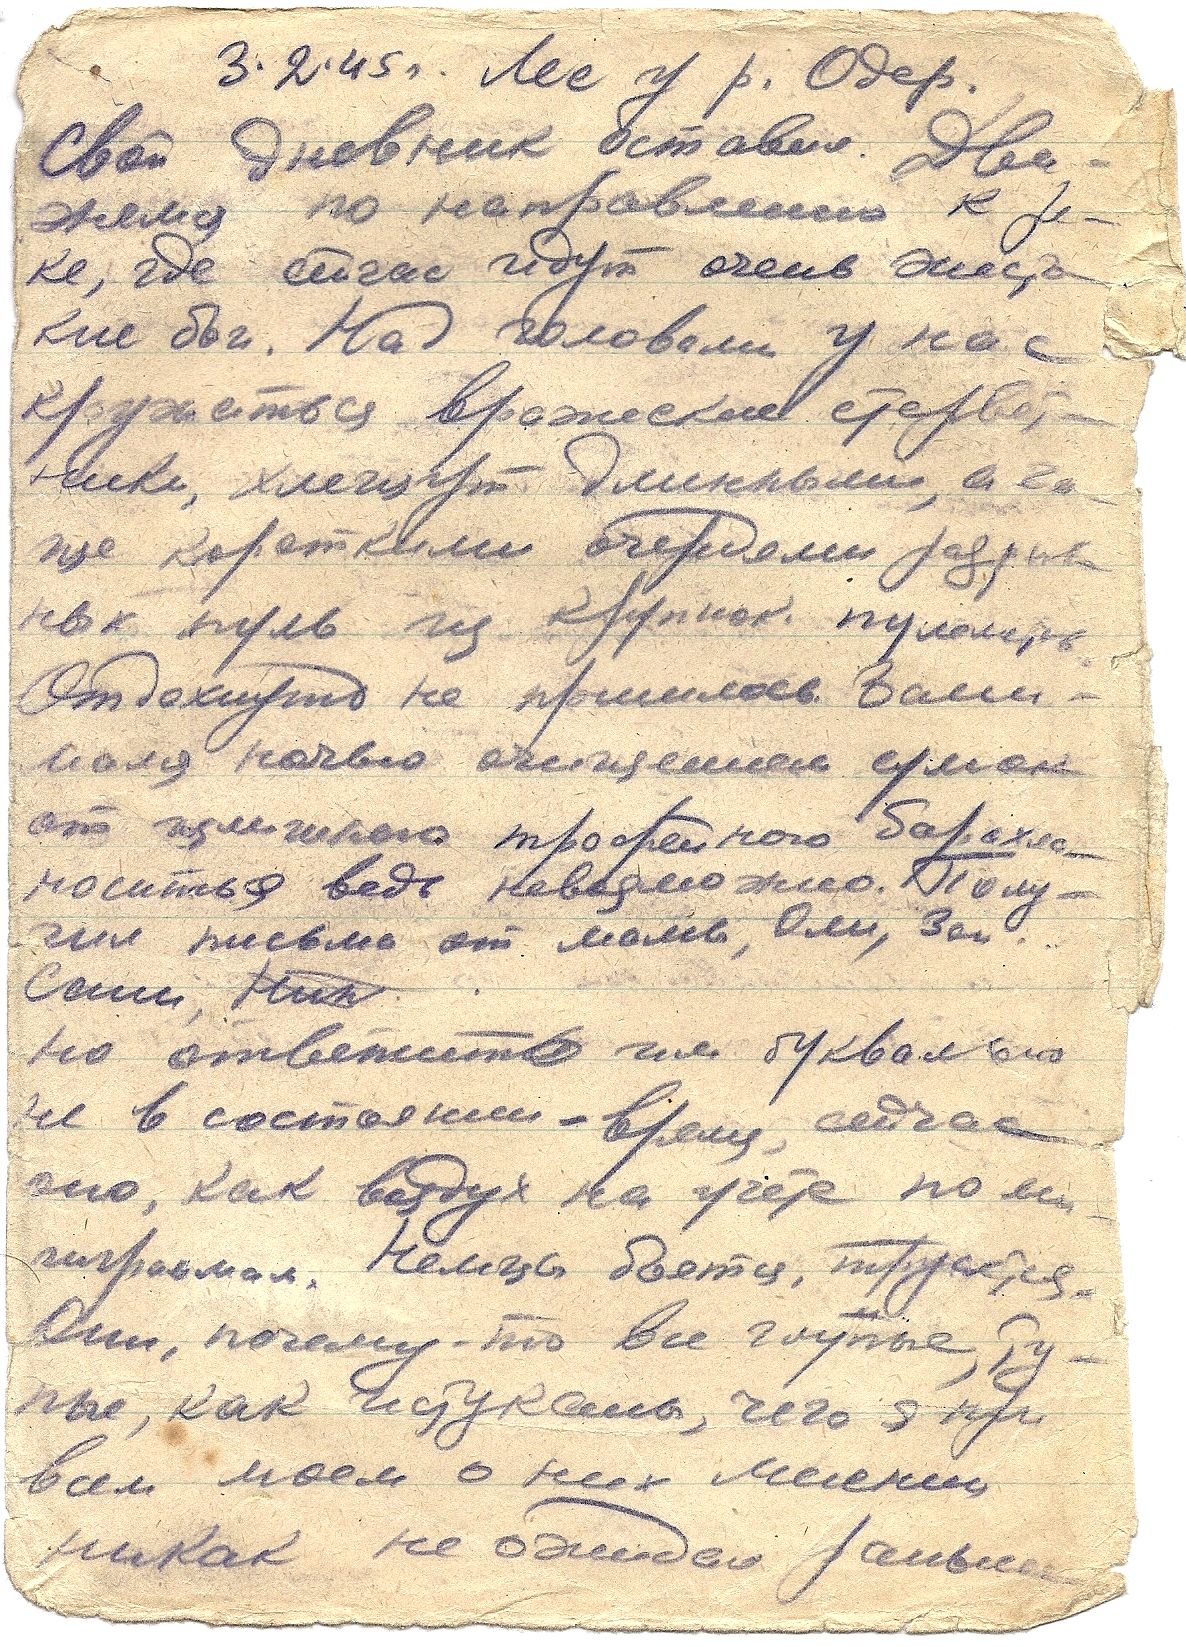 3.2.45г. Лес у р. Одер.
Свой дневник оставил. Дви-
жемся по направлению к ре-
ке, где сейчас идут очень жесто
кие бои. Над головами у нас
кружаться вражеские стервят-
ники, хлещут длинными, а ча-
ще короткими очередями разрыв
ных пуль из крупнок. пулемётов.
Отдохнуть не пришлось. Зани-
мался ночью очищением сумок
от излишнего трофейного барахла
носиться ведь невозможно. Полу-
чил письма от мамы, Оли,
Саши, Нин
но ответить им буквально
не в состоянии - время, сейчас
оно, как воздух на учёте по ми
лиграмам. Немцы бьются, трусятся.
Они, почему-то все глупые, ту-
пые, как истуканы, чего я при
всем моем о них мнении
никак не ожидал раньше